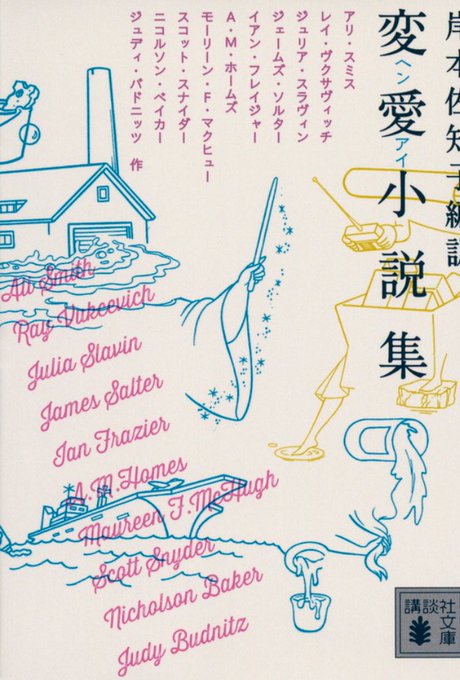 岸本佐知子編訳
変愛小説集
ヘン
アイ
アリ・スミス
レイ・ヴクサヴィッチ
ジュリア・スラヴィン
ジェームズ・ソルター
イアン・フレイジャー
A・M・ホームズ
モーリーン・F・マクヒュー
スコット・スナイダー
ニコルソン・ベイカー
ジュディ・バドニッツ 作
Ali Smith
Ray Vukcevich
Julia Slavin
James Salter
Ian Frazier
A.M.Homes
Maureen F.McHugh
Scott Snyder
Nicholson Baker
Judy Budnitz
講談社
文庫